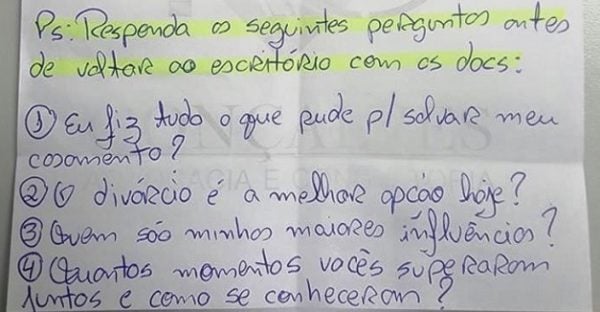 Ps: Responda os seguintes perguntas antes
de voltar ao escritório com os docs:
① Eu fiz tudo o que pude p/ salvar meu
casamento?
② O divórcio é a melhor opção hoje?
③ Quem são minhas maiores influências?
④ Quantos momentos vocês superaram
juntos e como se conheceram?